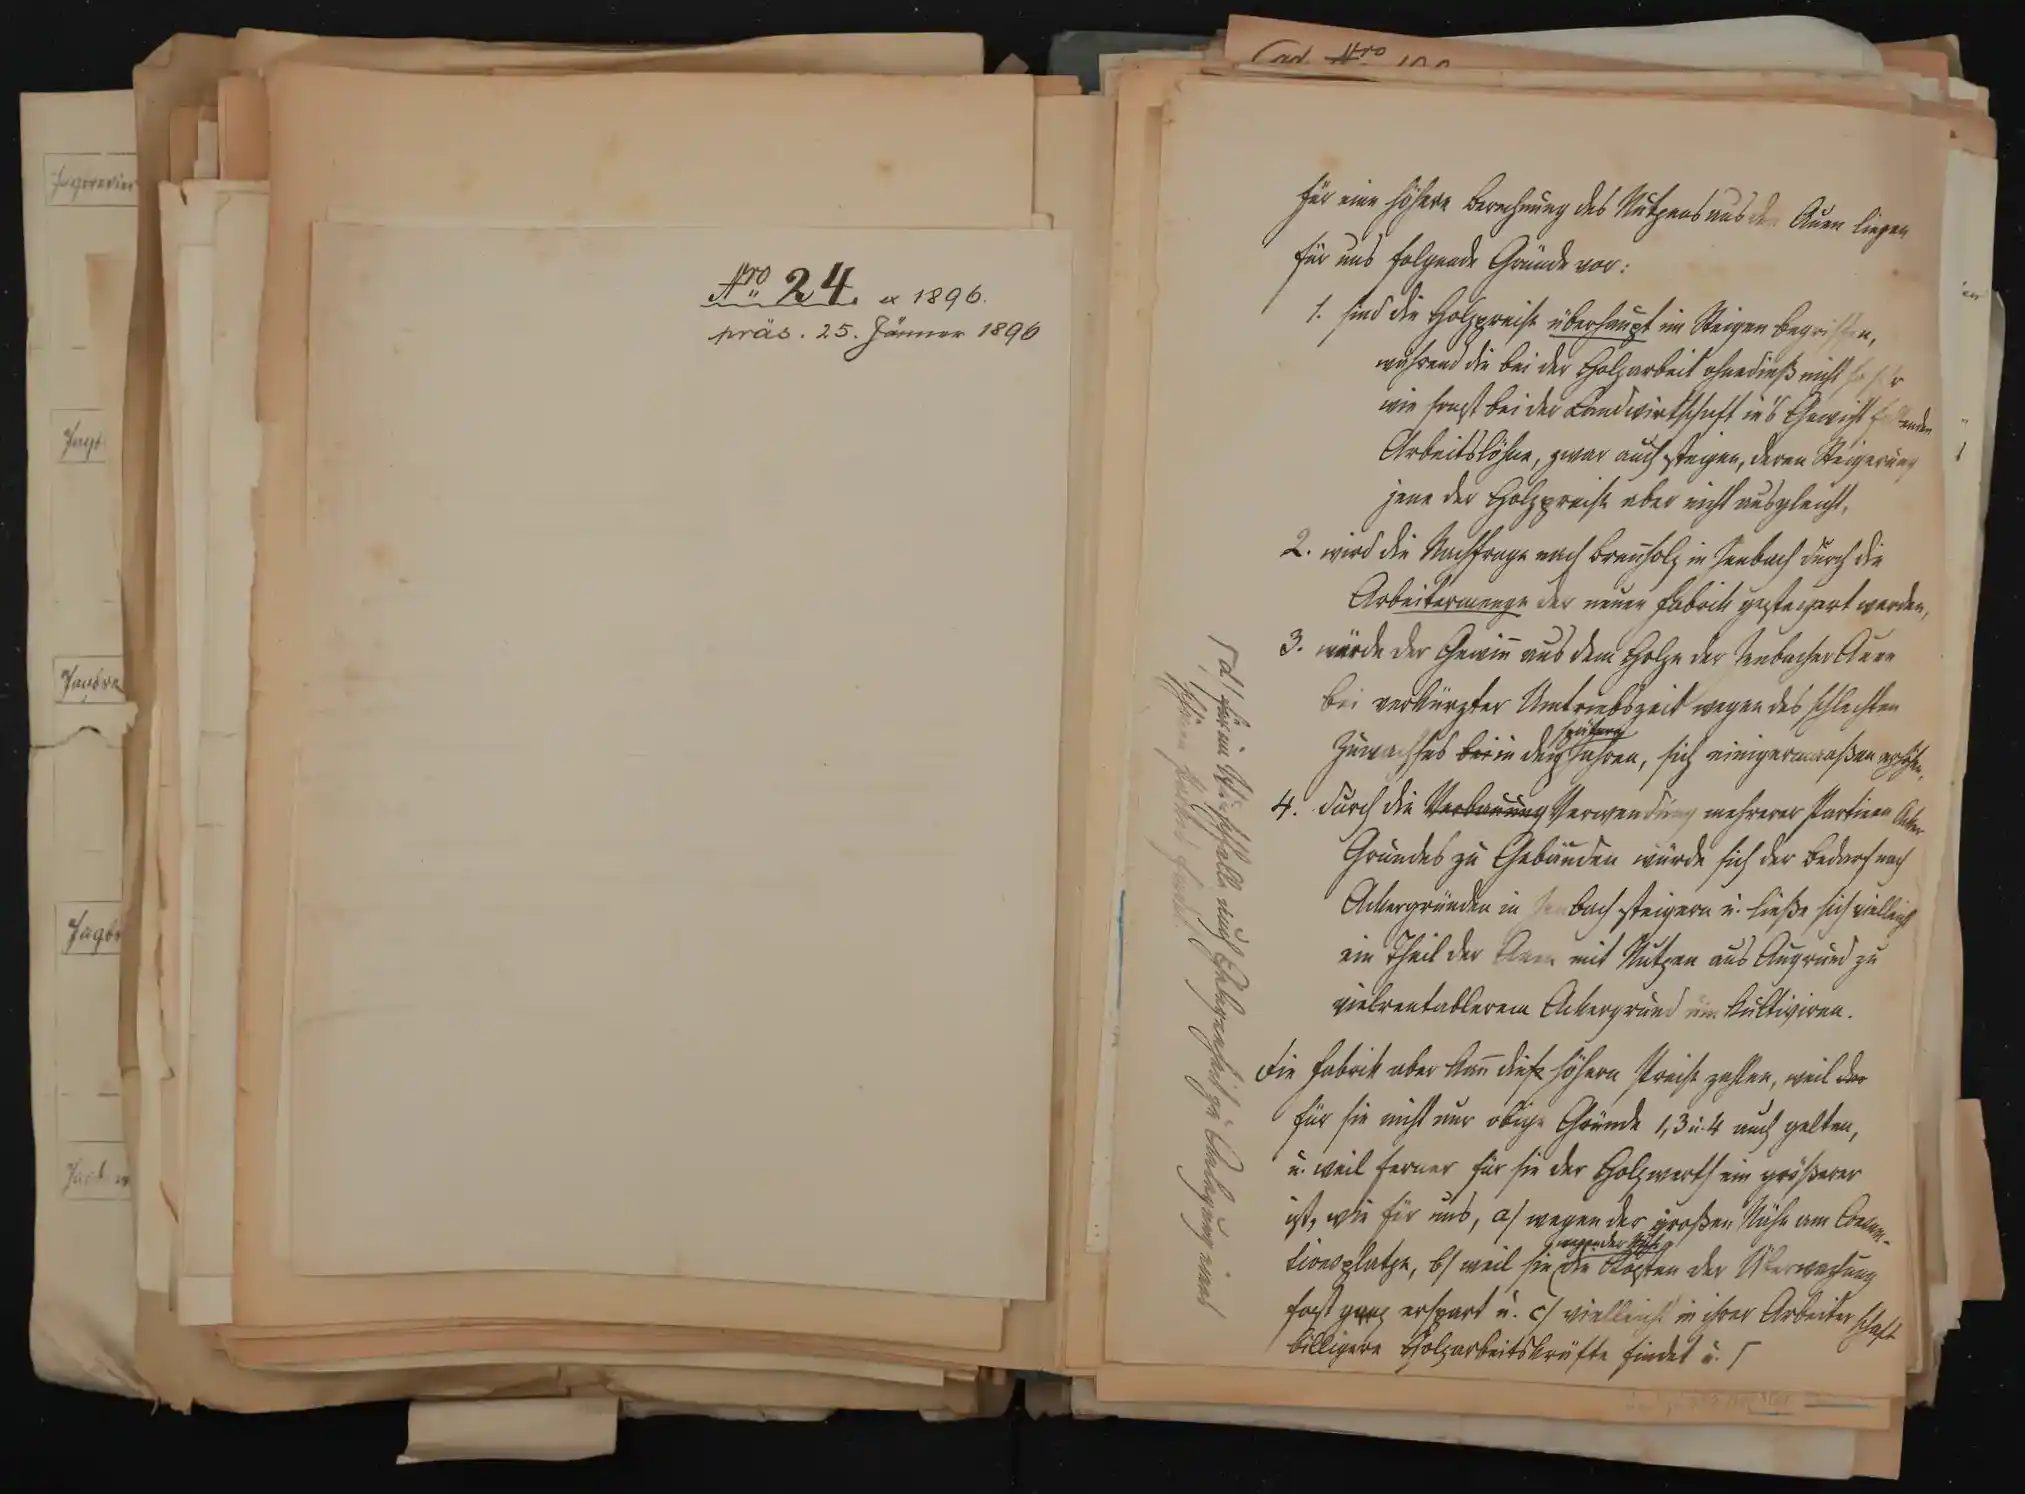 Jagdrevier
Jagd
Nro 24. ex 1896.
präs. 25. Jänner 1896
Cad. Nro 100
Für eine höhere Berechnung des Nutzens aus den Auen liegen
für uns folgende Gründe vor:
1. sind die Holzpreise überhaupt im Steigen begriffen,
während die bei der Holzarbeit ohnedieß nicht so sehr
wie sonst bei der Landwirtschaft in's Gewicht fallenden
Arbeitslöhne, zwar auch steigen, deren Steigerung
jene der Holzpreise aber nicht ausgleicht,
2. wird die Nachfrage nach Brennholz in Jenbach durch die
Arbeitermenge der neuen Fabrik gesteigert werden,
3. würde der Gewinn aus dem Holze der Jenbacher Auen
bei verkürzter Umtriebszeit wegen des schlechten
Zuwachses bei in den spätern Jahren, sich einigermaaßen erhöhen,
4. durch die Verbauung Verwendung mehrerer Partieen Acker
Grundes zu Gebäuden würde sich der Bedarf nach
Ackergründen in Jenbach steigern u. ließe sich vielleicht
ein Theil der Auen mit Nutzen aus Augrund zu
vielrentablerem Ackergrund um kultiviren.
Die Fabrik aber kann diese höhern Preise zahlen, weil der
für sie nicht nur obige Gründe 1, 3 u. 4 auch gelten,
u. weil ferner für sie der Holzwerth ein größerer
ist, wie für uns, a/ wegen der großen Nähe am Consum-
tionsplatze, b/ weil sie wegen der Nähe die Kosten der Überwachung
fast ganz erspart u. c/ vielleicht in ihrer Arbeiterschaft
billigere Holzarbeitskräfte findet u. Γ
Γ d/ für sie im Nothfalle auch Gelegenheit zu Anlegung eines